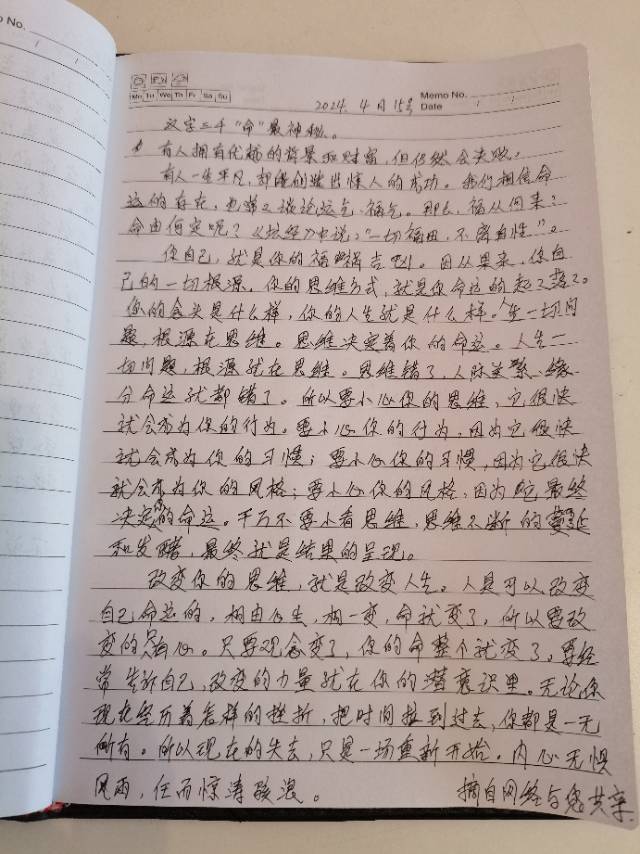 o No.
Mo Tu We Th Fr Sa Su
Memo No.
2024. 4 月 15号 Date / /
汉字三千"命"最神秘。
有人拥有优裕的背景和财富,但仍然会失败;
有人一生平凡,却能创造出惊人的成功。我们相信命
运的存在,也常常谈论运气、福气。那么,福从何来?
命由何定呢?《坛经》中说:"一切福田,不离自性"。
你自己,就是你的福祸吉凶。因从果来,你自
己的一切根源,你的思维方式,就是你命运的起起落落。
你的念头是什么样,你的人生就是什么样。人生一切问
题,根源在思维。思维决定着你的命运。人生一
切问题,根源就在思维。思维错了,人际关系、缘
分命运就都错了。所以要小心你的思维,它很快
就会成为你的行为。要小心你的行为,因为它很快
就会成为你的习惯;要小心你的习惯,因为它很快
就会成为你的风格;要小心你的风格,因为它最终
决定你的命运。千万不要小看思维,思维不断的蔓延
和发酵,最终就是结果的呈现。
改变你的思维,就是改变人生。人是可以改变
自己命运的,相由心生,相一变,命就变了,所以要改
变的是心。只要观念变了,你的命整个就变了,要经
常告诉自己,改变的力量就在你的潜意识里。无论你
现在经历着怎样的挫折,把时间拉到过去,你都是一无
所有。所以现在的失去,只是一场重新开始。内心无惧
风雨,任而惊涛骇浪。
摘自网络与您共享